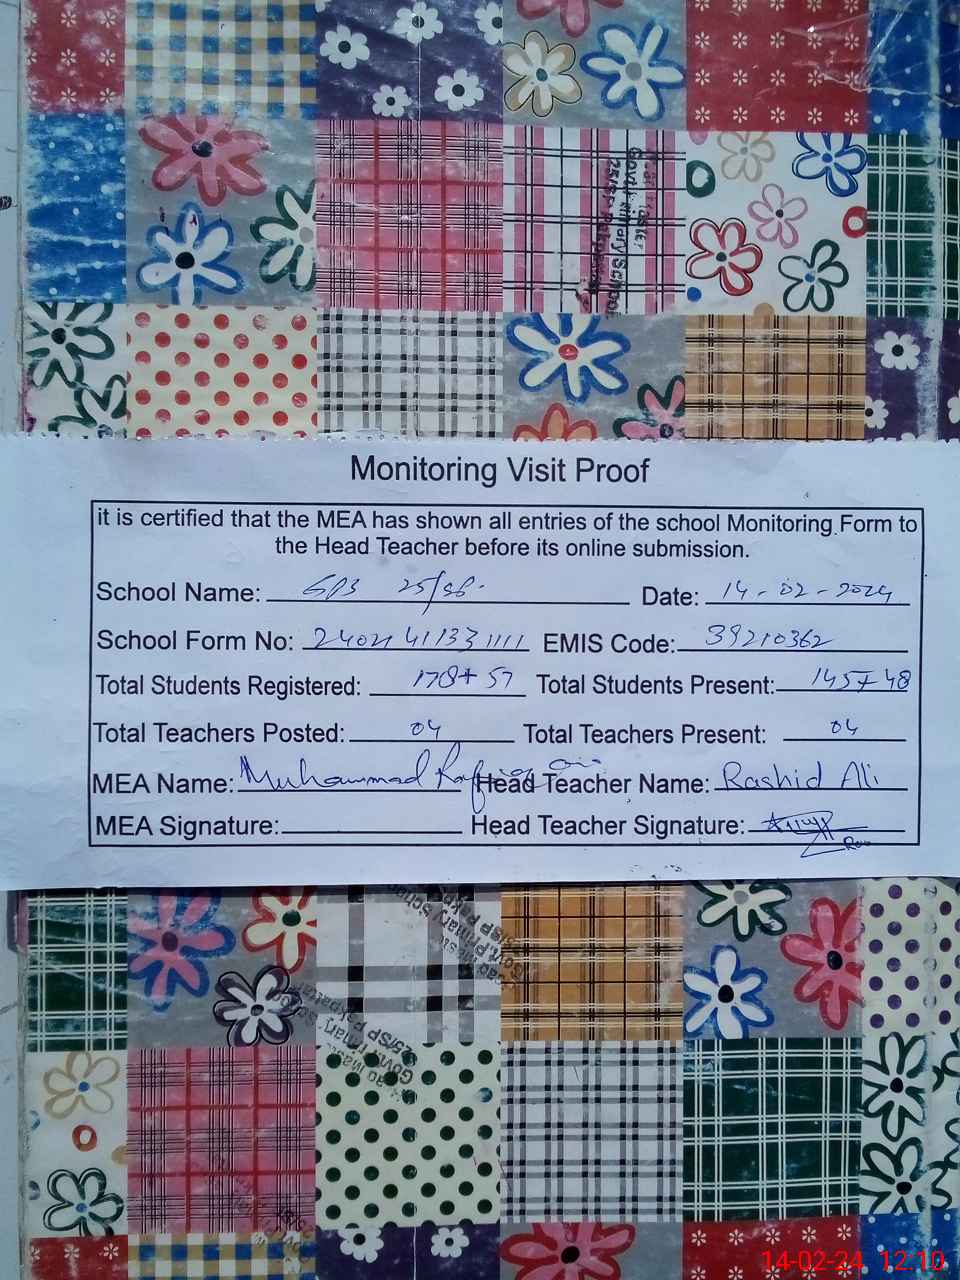 Govt. Primary School
25/SP Pakpattan
Monitoring Visit Proof
it is certified that the MEA has shown all entries of the school Monitoring Form to
the Head Teacher before its online submission.
School Name: GPS 25/SP. Date: 14-02-2024
School Form No: EMIS Code: 39210362
Total Students Registered: 178+57 Total Students Present: 145+48
Total Teachers Posted: 04 Total Teachers Present: 04
MEA Name: Muhammad Head Teacher Name: Rashid Ali
MEA Signature: Head Teacher Signature:
Govt. Primary School
25/SP Pakpattan
Govt. Primary School
25/SP Pakpattan
14-02-24 12:10